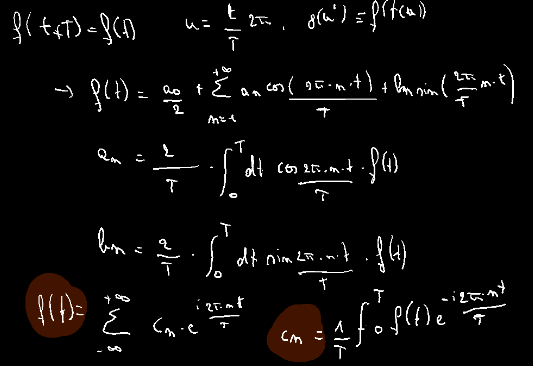 f(t+T)=f(t) u = t/T 2π, g(u) ≡ f(t(u))
→ f(t) = a₀/2 + ∑_{n=1}^{+∞} aₙ cos(2π·n·t/T) + bₙ sin(2π/T n·t)
aₙ = 2/T · ∫₀ᵀ dt cos 2π·n·t/T · f(t)
bₙ = 2/T · ∫₀ᵀ dt sin 2π·n·t/T · f(t)
f(t) = ∑_{-∞}^{+∞} cₙ·e^{i 2π·nt/T} cₙ = 1/T ∫₀ᵀ f(t) e^{-i 2π·nt/T}